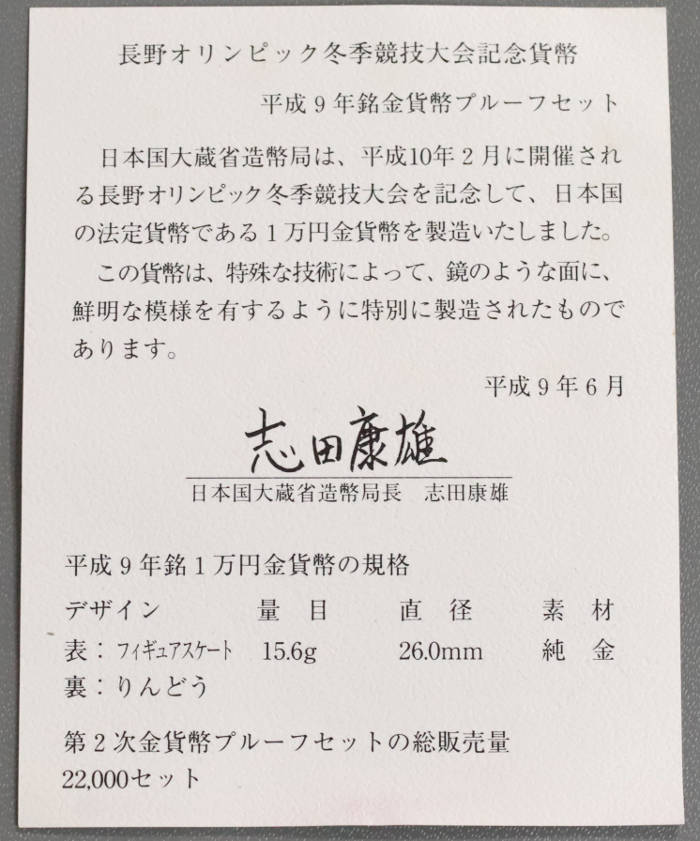 長野オリンピック冬季競技大会記念貨幣
平成9年銘金貨幣プルーフセット
日本国大蔵省造幣局は、平成10年2月に開催され
る長野オリンピック冬季競技大会を記念して、日本国
の法定貨幣である1万円金貨幣を製造いたしました。
この貨幣は、特殊な技術によって、鏡のような面に、
鮮明な模様を有するように特別に製造されたもので
あります。
平成9年6月
志田康雄
日本国大蔵省造幣局長 志田康雄
平成9年銘1万円金貨幣の規格
デザイン 量目 直径 素材
表：フィギュアスケート 15.6g 26.0mm 純金
裏：りんどう
第2次金貨幣プルーフセットの総販売量
22,000セット